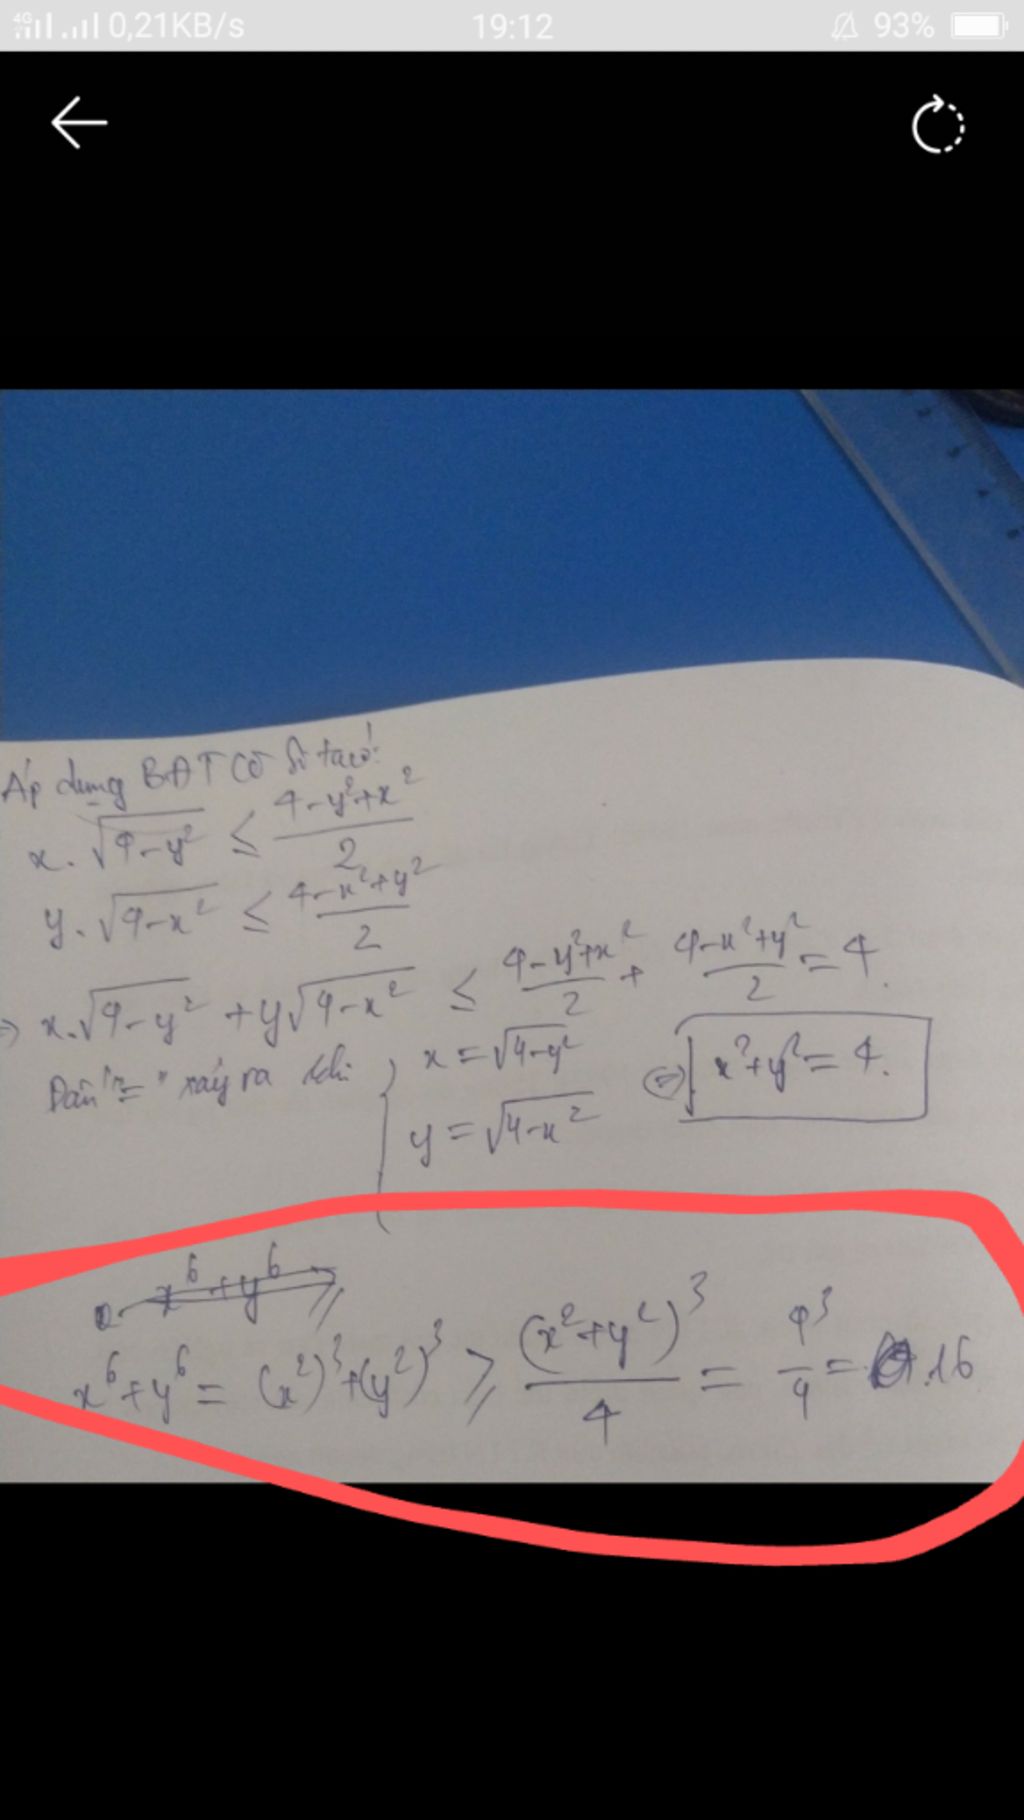 4G 0,21KB/s 19:12 93%
Áp dụng BĐT Cô Si ta có:
x.√(4-y²) ≤ (4-y²+x²)/2
y.√(4-x²) ≤ (4-x²+y²)/2
=> x.√(4-y²) + y√(4-x²) ≤ (4-y²+x²)/2 + (4-x²+y²)/2 = 4.
Dấu "=" xảy ra khi { x = √(4-y²) (=) x²+y² = 4.
y = √(4-x²)
x⁶+y⁶ ≥
x⁶+y⁶ = (x²)³+(y²)³ ≥ (x²+y²)³/4 = 4³/4 = 16